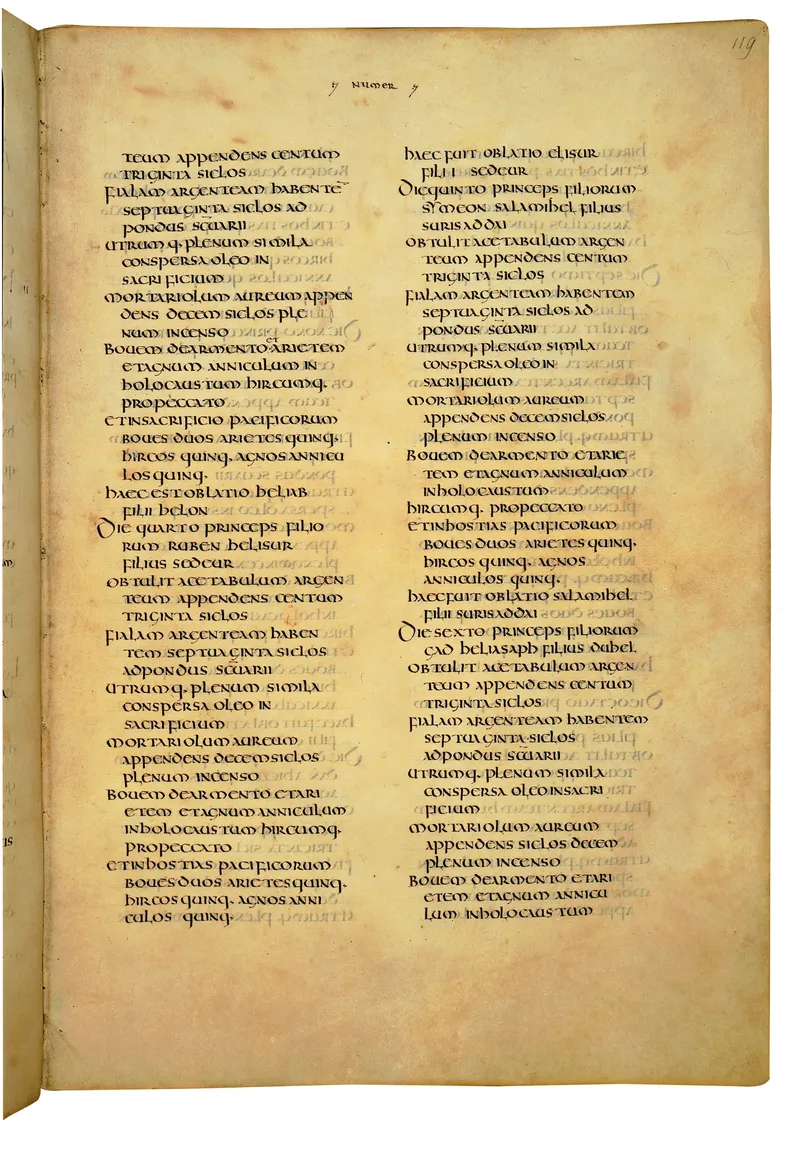 119
NUMER
TEUM APPENDENS CENTUM
TRIGINTA SICLOS
FIALAM ARGENTEAM HABENTE
SEPTUAGINTA SICLOS AD
PONDUS SCUARII
UTRUMQ. PLENUM SIMILA
CONSPERSA OLEO IN
SACRIFICIUM
MORTARIOLUM AUREUM APPEN
DENS DECEM SICLOS PLE
NUM INCENSO
BOUEM DEARMENTO ET ARIETEM
ETAGNUM ANNICULUM IN
HOLOCAUSTUM HIRCUMQ.
PROPECCATO
ETINSACRIFICIO PACIFICORUM
BOUES DUOS ARIETES QUINQ.
HIRCOS QUINQ. AGNOS ANNICU
LOS QUINQ.
HAEC EST OBLATIO HELIAB
FILII HELON
DIE QUARTO PRINCEPS FILIO
RUM RUBEN HELISUR
FILIUS SEDEUR
OBTULIT ACETABULUM ARGEN
TEUM APPENDENS CENTUM
TRIGINTA SICLOS
FIALAM ARGENTEAM HABEN
TEM SEPTUAGINTA SICLOS
ADPONDUS SCUARII
UTRUMQ. PLENUM SIMILA
CONSPERSA OLEO IN
SACRIFICIUM
MORTARIOLUM AUREUM
APPENDENS DECEM SICLOS
PLENUM INCENSO
BOUEM DEARMENTO ETARI
ETEM ETAGNUM ANNICULUM
INHOLOCAUSTUM HIRCUMQ.
PROPECCATO
ETINHOSTIAS PACIFICORUM
BOUES DUOS ARIETES QUINQ.
HIRCOS QUINQ. AGNOS ANNI
CULOS QUINQ.
HAEC FUIT OBLATIO ELISUR
FILII SEDEUR
DIE QUINTO PRINCEPS FILIORUM
SYMEON SALAMIHEL FILIUS
SURISADDAI
OBTULIT ACETABULUM ARGEN
TEUM APPENDENS CENTUM
TRIGINTA SICLOS
FIALAM ARGENTEAM HABENTEM
SEPTUAGINTA SICLOS AD
PONDUS SCUARII
UTRUMQ. PLENUM SIMILA
CONSPERSA OLEO IN
SACRIFICIUM
MORTARIOLUM AUREUM
APPENDENS DECEM SICLOS
PLENUM INCENSO
BOUEM DEARMENTO ETARIE
TEM ETAGNUM ANNICULUM
INHOLOCAUSTUM
HIRCUMQ. PROPECCATO
ETINHOSTIAS PACIFICORUM
BOUES DUOS ARIETES QUINQ.
HIRCOS QUINQ. AGNOS
ANNICULOS QUINQ.
HAEC FUIT OBLATIO SALAMIHEL
FILII SURISADDAI
DIE SEXTO PRINCEPS FILIORUM
GAD HELIASAPH FILIUS DUHEL
OBTULIT ACETABULUM ARGEN
TEUM APPENDENS CENTUM
TRIGINTA SICLOS
FIALAM ARGENTEAM HABENTEM
SEPTUAGINTA SICLOS
ADPONDUS SCUARII
UTRUMQ. PLENUM SIMILA
CONSPERSA OLEO INSACRI
FICIUM
MORTARIOLUM AUREUM
APPENDENS SICLOS DECEM
PLENUM INCENSO
BOUEM DEARMENTO ETARI
ETEM ETAGNUM ANNICU
LUM INHOLOCAUSTUM